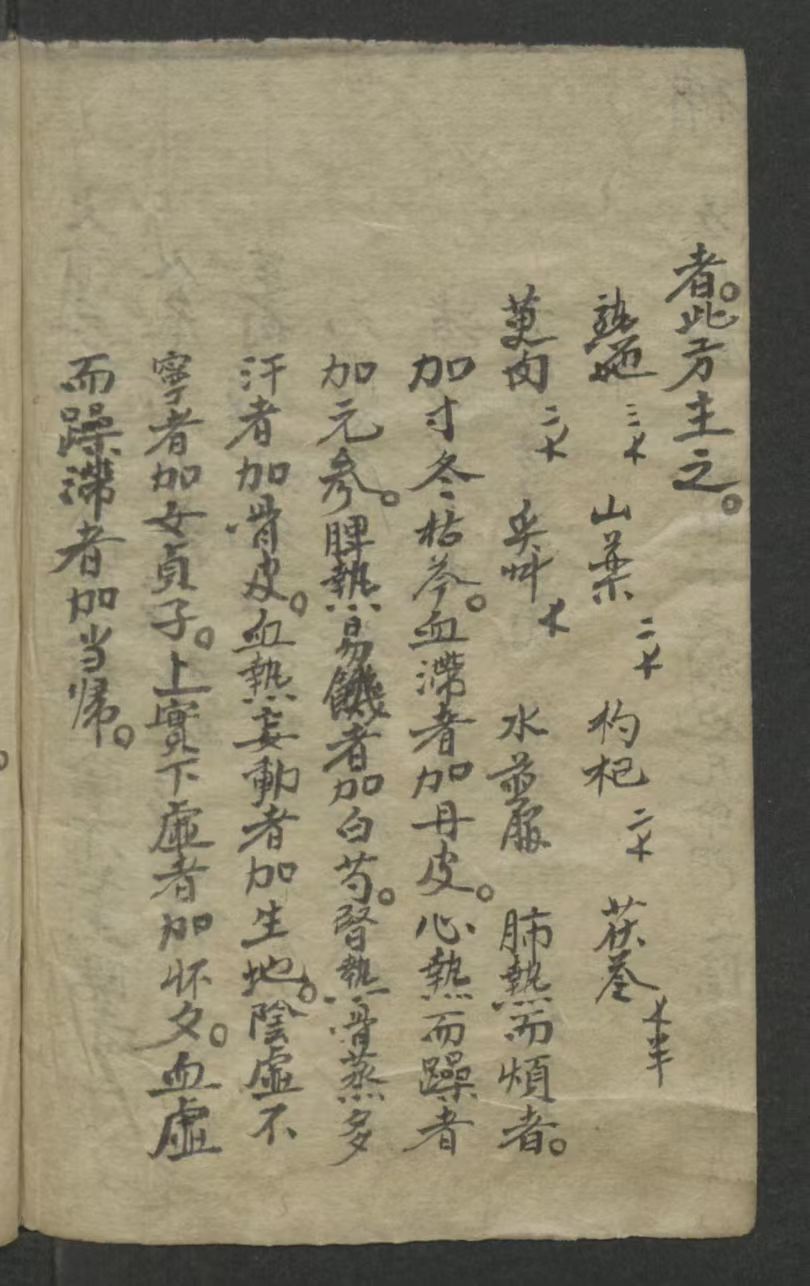 者。此方主之。
熟地 三卜 山藥 二卜 杓杞 二卜 茯苓 卜半
萸肉 二卜 炙艸 卜 水煎服 肺熱而煩者。
加寸冬枯芩。血滯者加丹皮。心熱而躁者
加元參。脾熱易饑者加白芍。腎熱骨蒸多
汗者加骨皮。血熱妄動者加生地。陰虛不
寧者加女貞子。上實下虛者加怀夕。血虛
而躁滯者加当帰。